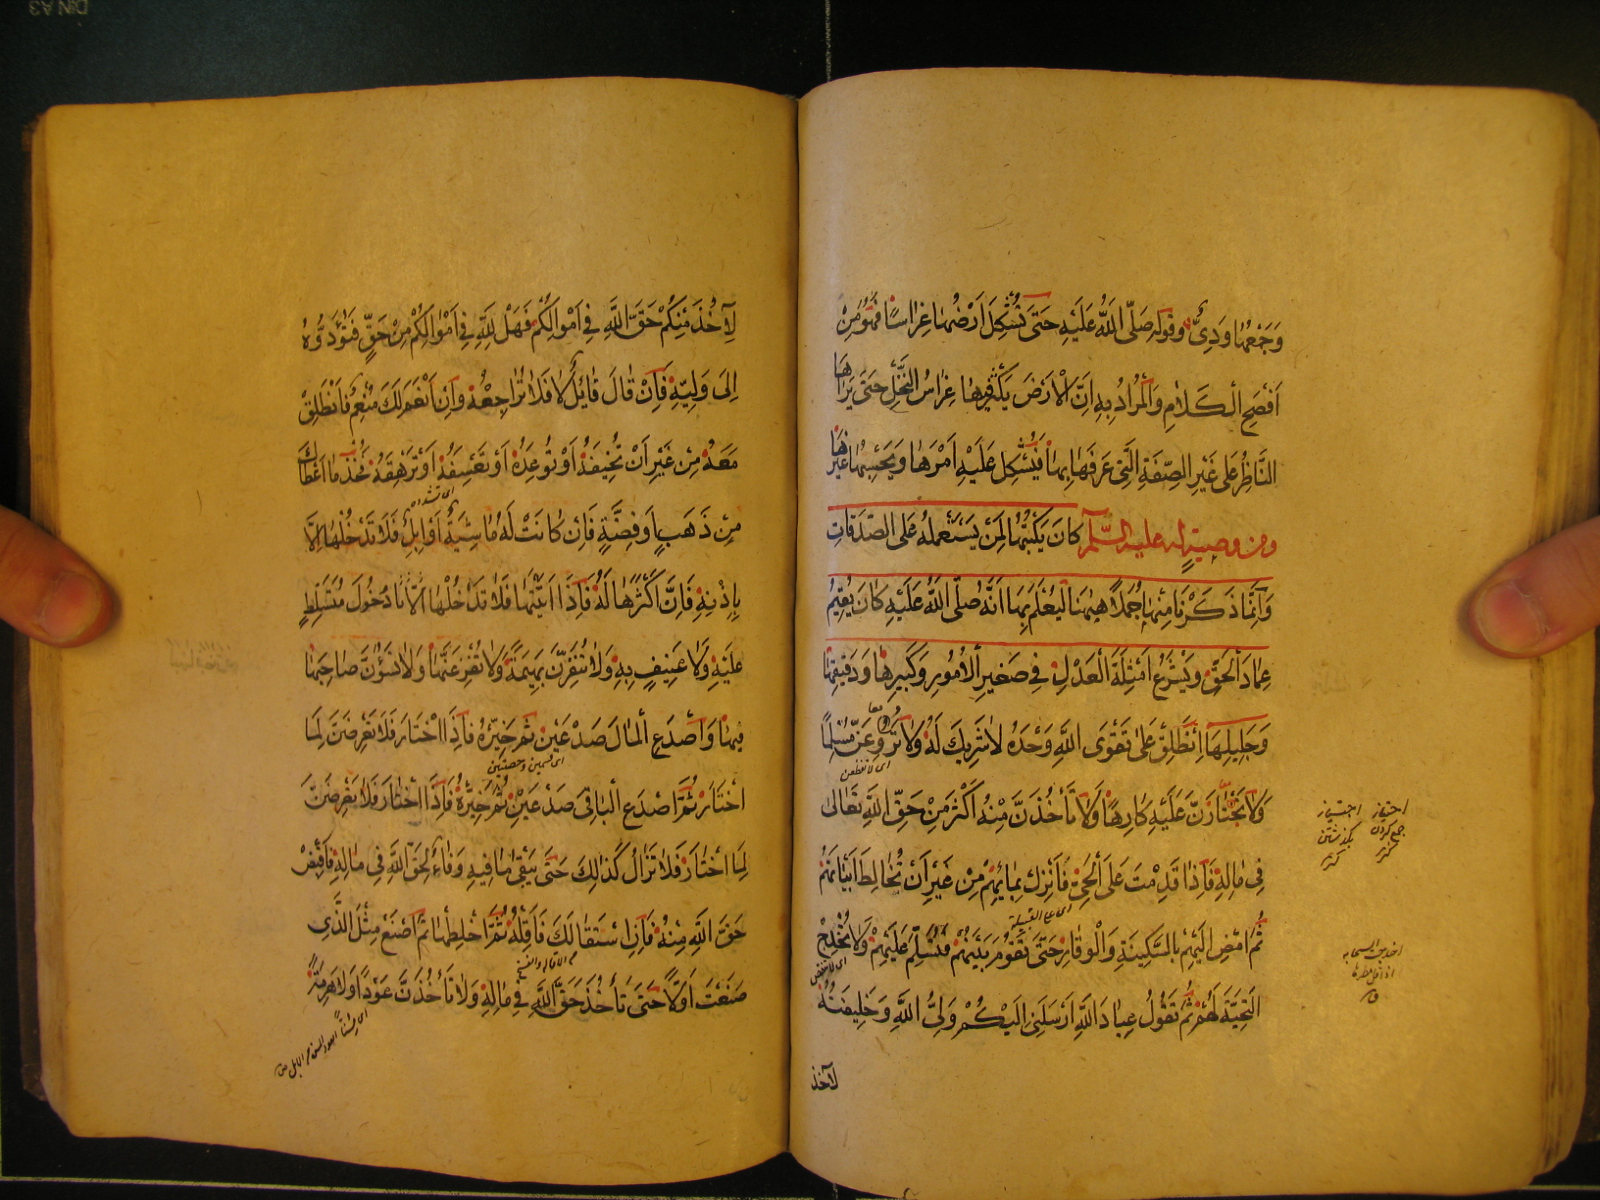 وَجَمْعُهَا وَدِيٌّ وقوله صَلَّى اللهُ عَلَيْهِ حَتّى تُشْكِلَ اَرْضُهَا غِرَاسًا فَهُوَ مِنْ
اَفْصَحِ الْكَلَامِ وَالْمُرَادُ بِهِ اِنَّ الْاَرْضَ يَكْثُرُ فِيهَا غِرَاسُ النَّخْلِ حَتّى يَرَاهَا
النَّاظِرُ عَلى غَيْرِ الصِّفَةِ الَّتِى عَرَفَهَا بِهَا فَيُشْكِلُ عَلَيْهِ اَمْرُهَا وَيَحْسِبُهَا غَيْرَهَا
ومن وصية له عليه السّلم كَانَ يَكْتُبُهَا لِمَنْ يَسْتَعْمِلُهُ عَلَى الصَّدَقَاتِ
وَاِنَّمَا ذَكَرْنَا مِنْهَا جُمَلًا هيهُنَا لِيُعْلَمَ بِهَا اَنَّهُ صَلَّى اللهُ عَلَيْهِ كَانَ يُقِيمُ
عِمَادَ الْحَقِّ وَيَشْرَعُ اَمْثِلَةَ الْعَدْلِ فِى صَغِيرِ الْاُمُورِ وَكَبِيرِهَا وَدَقِيقِهَا
وَجَلِيلِهَا اِنْطَلِقْ عَلى تَقْوَى اللهِ وَحْدَهُ لَا شَرِيكَ لَهُ وَلَا تُرَوِّعَنَّ مُسْلِمًا
وَلَا تَجْتَازَنَّ عَلَيْهِ كَارِهًا وَلَا تَأْخُذَنَّ مِنْهُ اَكْثَرَ مِنْ حَقِّ اللهِ تَعَالى
فِى مَالِهِ فَاِذَا قَدِمْتَ عَلَى الْحَيِّ فَانْزِلْ بِمَائِهِمْ مِنْ غَيْرِ اَنْ تُخَالِطَ اَبْيَاتَهُمْ
ثُمَّ امْضِ اِلَيْهِمْ بِالسَّكِينَةِ وَالْوَقَارِ حَتّى تَقُومَ بَيْنَهُمْ فَتُسَلِّمَ عَلَيْهِمْ وَلَا تُخْدِجْ
التَّحِيَّةَ لَهُمْ ثُمَّ تَقُولُ عِبَادَ اللهِ اَرْسَلَنِى اِلَيْكُمْ وَلِيُّ اللهِ وَخَلِيفَتُهُ
لآخذ
اى على القبيلة
جمع كردن
بگذشتن
كنز
لِآخُذَ مِنْكُمْ حَقَّ اللهِ فِى اَمْوَالِكُمْ فَهَلْ لِلّهِ فِى اَمْوَالِكُمْ مِنْ حَقٍّ فَتُؤَدُّوهُ
اِلَى وَلِيِّهِ فَاِنْ قَالَ قَائِلٌ لَا فَلَا تُرَاجِعْهُ وَاِنْ اَنْعَمَ لَكَ مُنْعِمٌ فَانْطَلِقْ
مَعَهُ مِنْ غَيْرِ اَنْ تُخِيفَهُ اَوْ تُوعِدَهُ اَوْ تَعْسِفَهُ اَوْ تُرْهِقَهُ فَخُذْ مَا اَعْطَاكَ
مِنْ ذَهَبٍ اَوْ فِضَّةٍ فَاِنْ كَانَتْ لَهُ مَاشِيَةٌ اَوْ اِبِلٌ فَلَا تَدْخُلْهَا اِلَّا
بِاِذْنِهِ فَاِنَّ اَكْثَرَهَا لَهُ فَاِذَا اَتَيْتَهَا فَلَا تَدْخُلْهَا دُخُولَ مُتَسَلِّطٍ
عَلَيْهِ وَلَا عَنِيفٍ بِهِ وَلَا تُنَفِّرَنَّ بَهِيمَةً وَلَا تُفْزِعَنَّهَا وَلَا تَسُوْءَنَّ صَاحِبَهَا
فِيهَا وَاصْدَعِ الْمَالَ صَدْعَيْنِ ثُمَّ خَيِّرْهُ فَاِذَا اخْتَارَ فَلَا تَعْرِضَنَّ لِمَا
اى قسمين وحصتين
اخْتَارَ ثُمَّ اصْدَعِ الْبَاقِىَ صَدْعَيْنِ ثُمَّ خَيِّرْهُ فَاِذَا اخْتَارَ فَلَا تَعْرِضَنَّ
لِمَا اخْتَارَ فَلَا تَزَالُ كَذَالِكَ حَتّى يَبْقى مَا فِيهِ وَفَاءٌ لِحَقِّ اللهِ فِى مَالِهِ فَاقْبِضْ
حَقَّ اللهِ مِنْهُ فَاِنِ اسْتَقَالَكَ فَاَقِلْهُ ثُمَّ اخْلِطْهَا ثُمَّ اصْنَعْ مِثْلَ الَّذِى
صَنَعْتَ اَوَّلًا حَتّى تَأْخُذَ حَقَّ اللهِ فِى مَالِهِ وَلَا تَأْخُذَنَّ عَوْدًا وَلَا هَرِمَةً